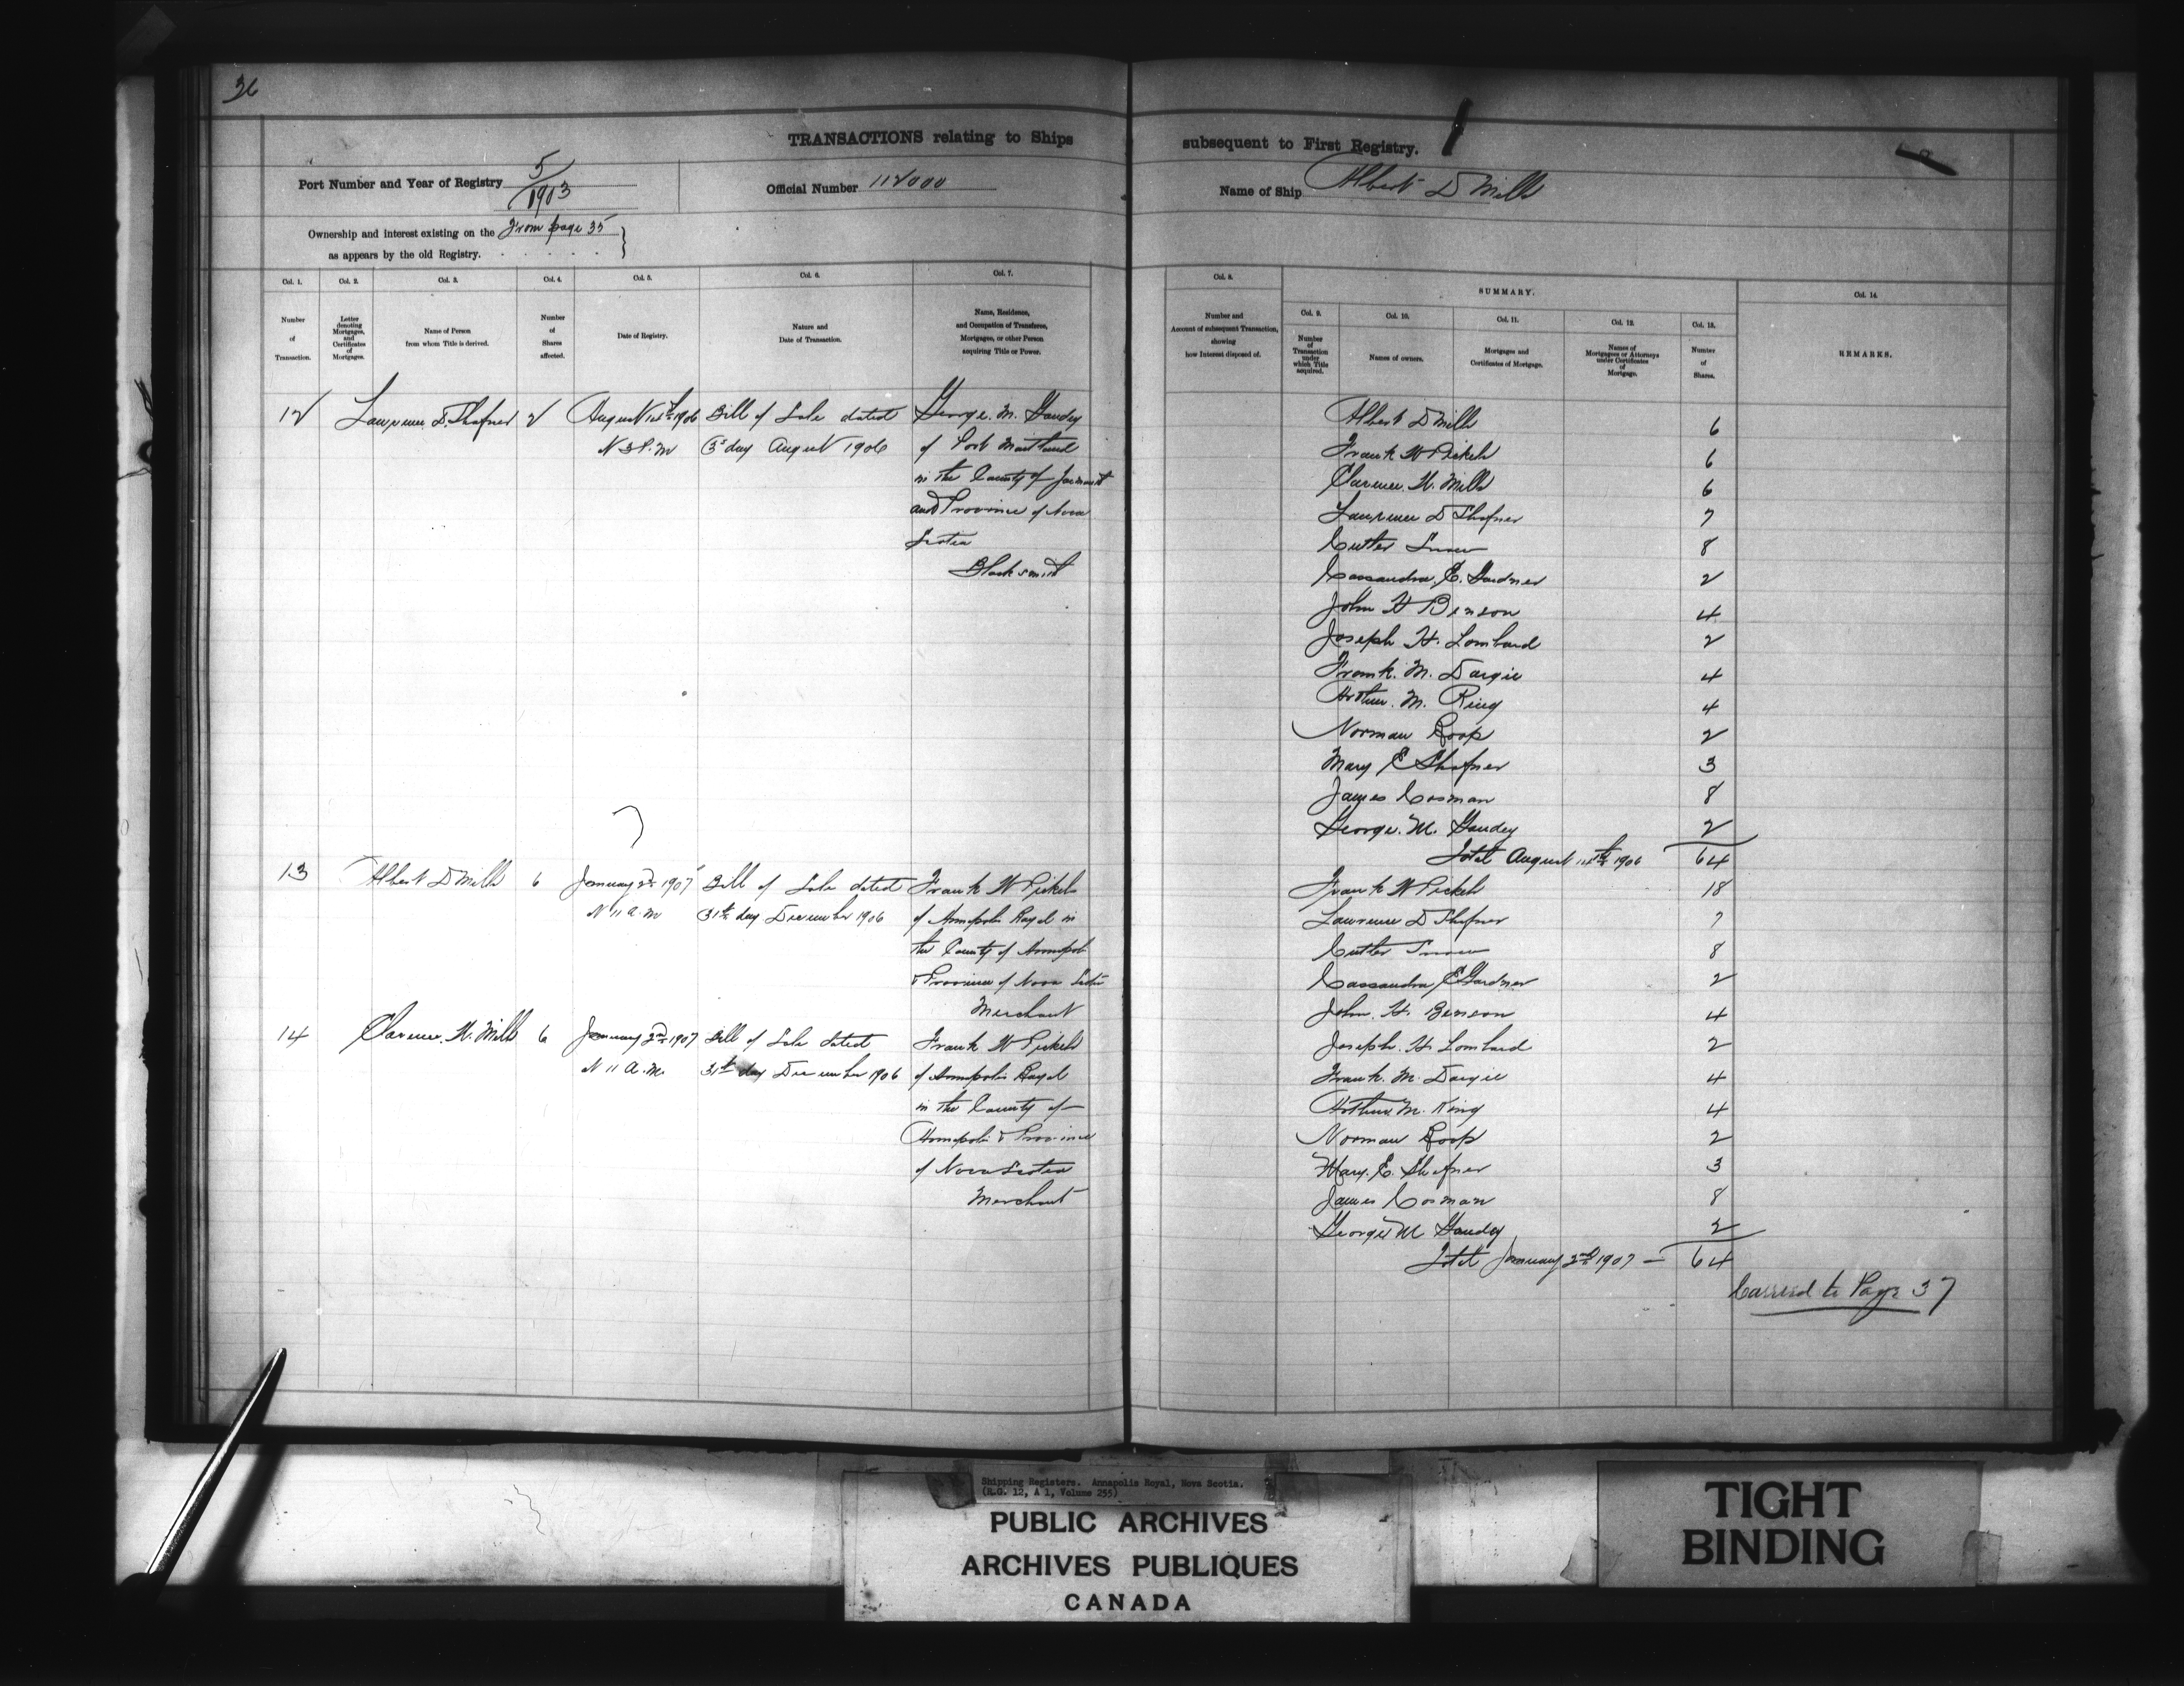 36
TRANSACTIONS relating to Ships subsequent to First Registry.
Port Number and Year of Registry 5/1903
Official Number 112000
Name of Ship Albert D Mills
Ownership and interest existing on the From page 35
as appears by the old Registry.
Col. 1. Col. 2. Col. 3. Col. 4. Col. 5. Col. 6. Col. 7.
Number of Transaction.
Letter denoting Mortgages, and Certificates of Mortgages.
Name of Person from whom Title is derived.
Number of Shares affected.
Date of Registry.
Nature and Date of Transaction.
Name, Residence, and Occupation of Transferee, Mortgagee, or other Person acquiring Title or Power.
12 Lawrence D. Shafner 2 August 1906 Bill of Sale dated George. M. Gaudey
3 P.M 3d day August 1906 of Port Maitland
in the County of Yarmouth
and Province of Nova
Scotia
Blacksmith
13 Albert D Mills 6 January 2nd 1907 Bill of Sale dated Frank W Pickels
11 A.M 31st day December 1906 of Annapolis Royal in
the County of Annapolis
& Province of Nova Scotia
Merchant
14 Clarence. H. Mills 6 January 2nd 1907 Bill of Sale dated Frank W Pickels
11 A.M. 31st day December 1906 of Annapolis Royal
in the County of
Annapolis & Province
of Nova Scotia
Merchant
Col. 8.
Number and Account of subsequent Transaction, showing how Interest disposed of.
SUMMARY.
Col. 9. Col. 10. Col. 11. Col. 12. Col. 13. Col. 14.
Number of Transaction under which Title acquired.
Names of owners.
Mortgages and Certificates of Mortgage.
Names of Mortgagees or Attorneys under Certificates of Mortgage.
Number of Shares.
REMARKS.
Albert D Mills 6
Frank W Pickels 6
Clarence. H. Mills 6
Lawrence D Shafner 7
Cutler Snow 8
Cassandra. E. Gardner 2
John H Benson 4
Joseph H. Lombard 2
Frank. M. Dargie 4
Arthur. M. King 4
Norman Roop 2
Mary E Shafner 3
James Cosman 8
George. M. Gaudey 2
Total August 1906 64
Frank W Pickels 18
Lawrence D Shafner 7
Cutler Snow 8
Cassandra E Gardner 2
John. H. Benson 4
Joseph. H Lombard 2
Frank. M. Dargie 4
Arthur M. King 4
Norman Roop 2
Mary. E. Shafner 3
James Cosman 8
George M Gaudey 2
Total January 2nd 1907 — 64
Carried to Page 37
Shipping Registers. Annapolis Royal, Nova Scotia.
(R.G. 12, A 1, Volume 255)
PUBLIC ARCHIVES
ARCHIVES PUBLIQUES
CANADA
TIGHT
BINDING